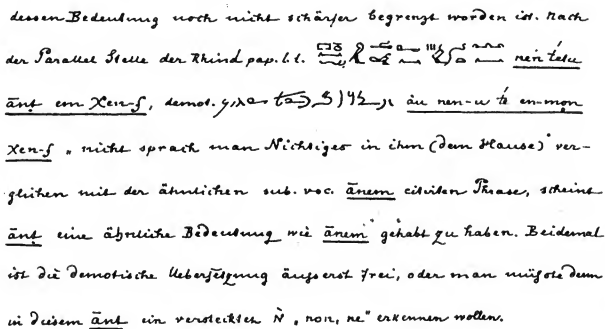 dessen Bedeutung noch nicht schärfer begrenzt worden ist. Nach
der Parallel Stelle der Rhind pap. l.l. nen tétu
ānṭ em χen-f, demot. àu nen-u té en-mon
χen-f „nicht sprach man Nichtiges in ihm (dem Hause)" ver-
glichen mit der ähnlichen sub. voc. ānem citirten Phrase, scheint
ānṭ eine ähnliche Bedeutung wie ānem gehabt zu haben. Beidemal
ist die demotische Uebersetzung äusserst frei, oder man müsste denn
in diesem ānṭ ein verstecktes Ǹ „non, ne" erkennen wollen.